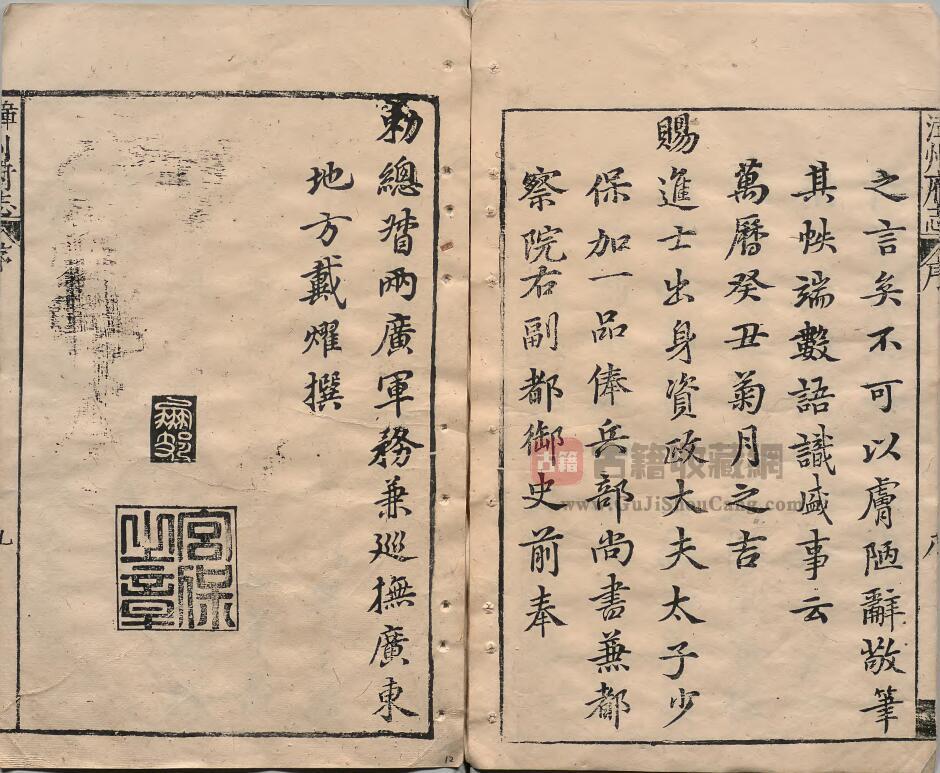 漳州府志 序 八
之言矣不可以膚陋辭敬筆
其帙端數語識盛事云
萬曆癸丑菊月之吉
賜進士出身資政大夫太子少
保加一品俸兵部尚書兼都
察院右副都御史前奉
勅總督兩廣軍務兼巡撫廣東
地方戴燿撰
宮保之章
漳州府志 序 九
12
古籍
古籍收藏網
www.GuJiShouCang.com